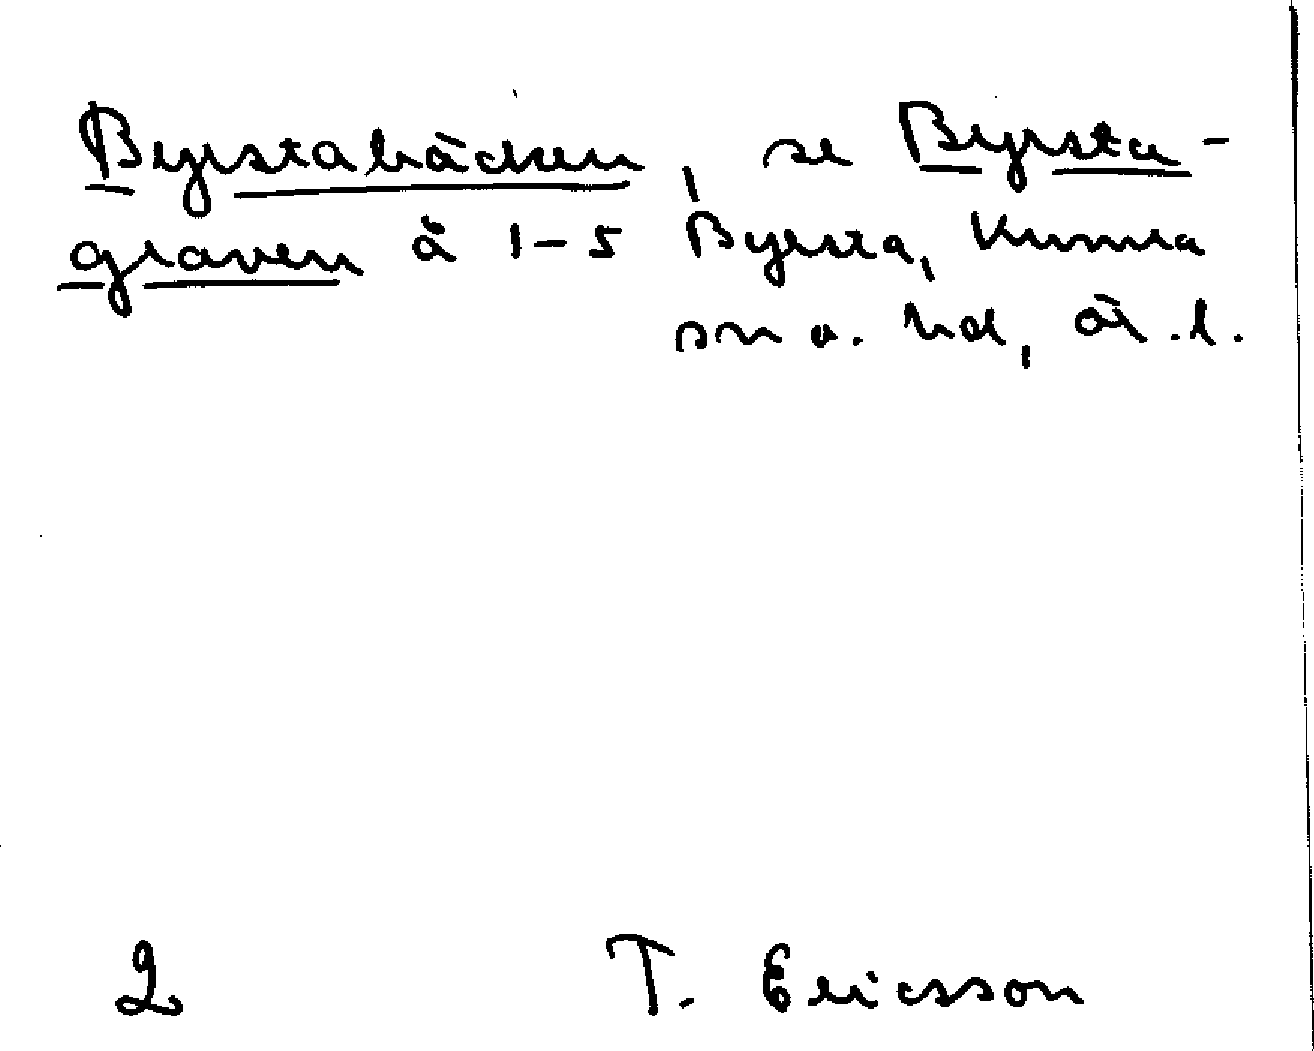 Byrstabäcken, se Byrsta-
graven å 1-5 Byrsta, Kumla
sn o. hd, Ör.l.
2 T. Ericsson